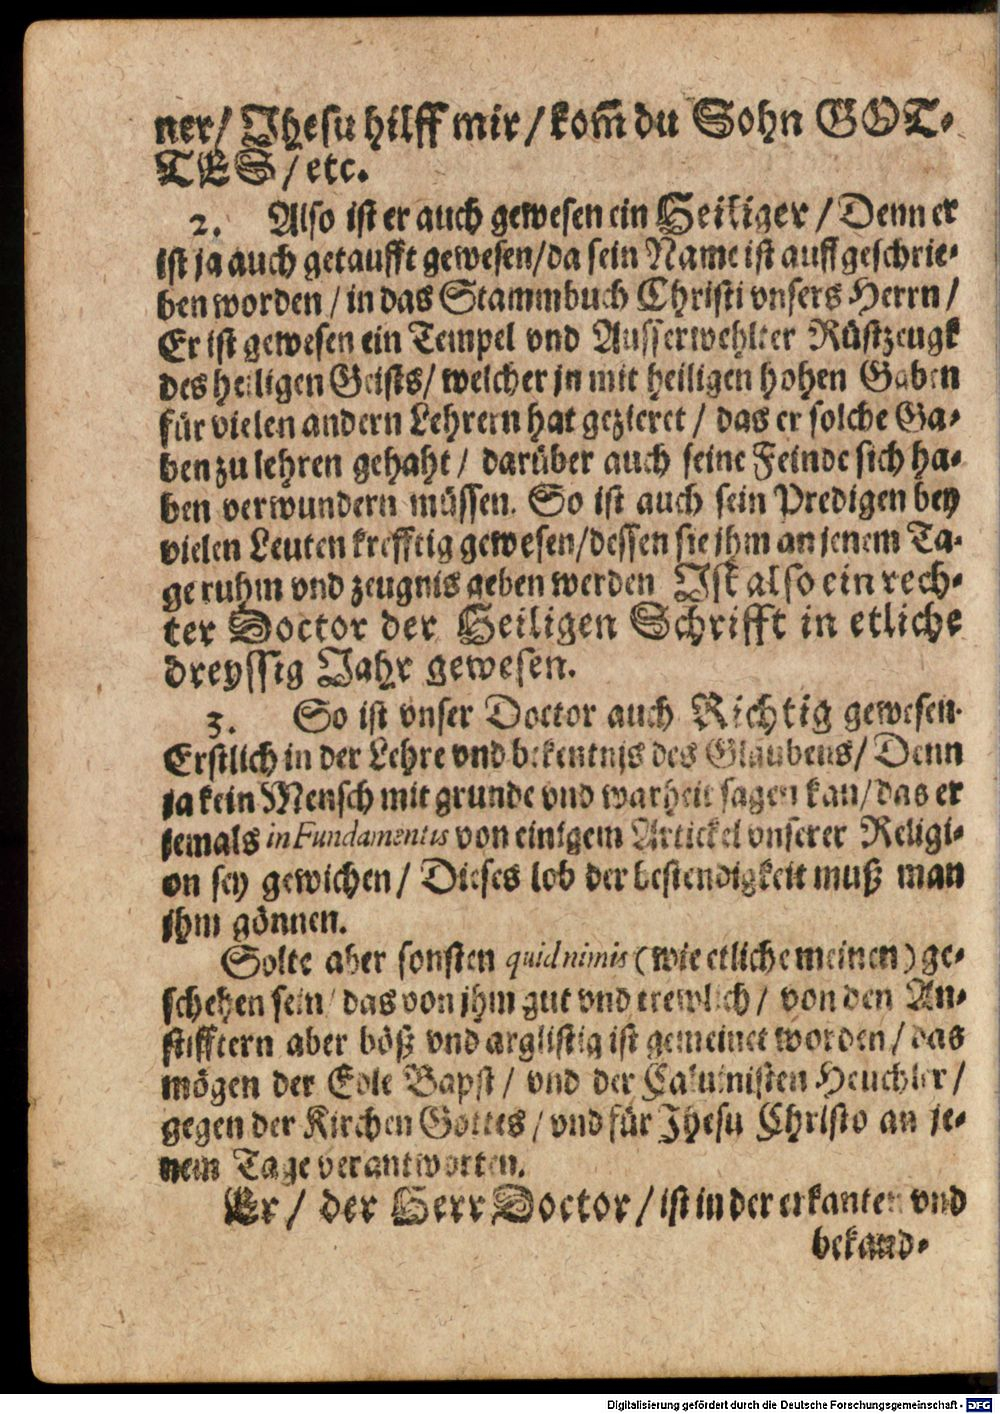 ner/ Jhesu hilff mir/ kom̃ du Sohn GOT-
TES/ etc.
2. Also ist er auch gewesen ein Heiliger/ Denn er
ist ja auch getaufft gewesen/ da sein Name ist auffgeschrie-
ben worden/ in das Stammbuch Christi vnsers Herrn/
Er ist gewesen ein Tempel vnd Ausserwehlter Rüstzeugk
des heiligen Geists/ welcher jn mit heiligen hohen Gaben
für vielen andern Lehrern hat gezieret/ das er solche Ga-
ben zu lehren gehaht/ darüber auch seine Feinde sich ha-
ben verwundern müssen. So ist auch sein Predigen bey
vielen Leuten krefftig gewesen/ dessen sie jhm an jenem Ta-
ge ruhm vnd zeugnis geben werden Jst also ein rech-
ter Doctor der Heiligen Schrifft in etliche
dreyssig Jahr gewesen.
3. So ist vnser Doctor auch Richtig gewesen.
Erstlich in der Lehre vnd bekentnjs des Glaubens/ Denn
ja kein Mensch mit grunde vnd warheit sagen kan/ das er
jemals in Fundamentis von einigem Artickel vnserer Religi-
on sey gewichen/ Dieses lob der bestendigkeit muß man
jhm gönnen.
Solte aber sonsten quid nimis (wie etliche meinen) ge-
schehen sein/ das von jhm gut vnd trewlich/ von den An-
stifftern aber böß vnd arglistig ist gemeinet worden/ das
mögen der Edle Bapst/ vnd der Caluinisten Heuchler/
gegen der Kirchen Gottes/ vnd für Jhesu Christo an je-
nem Tage verantworten.
Er/ der Herr Doctor/ ist in der erkanten vnd
bekand-
Digitalisierung gefördert durch die Deutsche Forschungsgemeinschaft - DFG